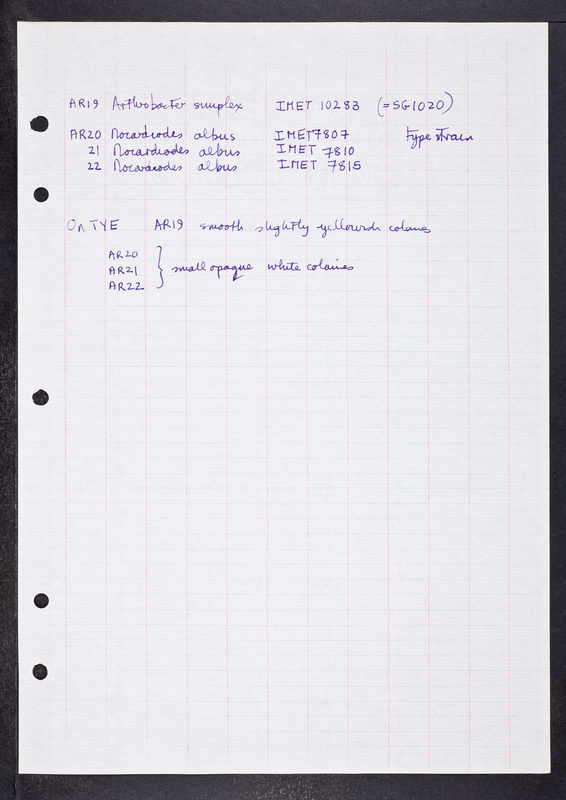 AR19 Arthrobacter simplex IMET 10283 (=SG1020)
AR20 Nocardiodes albus IMET7807 type strain
21 Nocardiodes albus IMET 7810
22 Nocardiodes albus IMET 7815
On TYE AR19 smooth slightly yellowish colonies
AR20
AR21 } small opaque white colonies
AR22